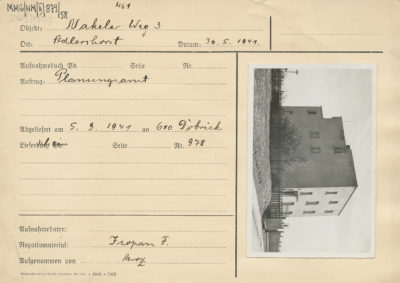 MMG/HM/II/879/58
461
Objekt: Nakeler Weg 3
Ort: Adlershorst Datum: 30.5.1941.
Aufnahmebuch Bd. Seite Nr.
Auftrag: Planungsamt
Abgeliefert am 5.9.1941 an G10 Dobrick
Lieferschein Seite Nr. 978
Aufnahmedaten:
Negativmaterial: Isopan F.
Aufgenommen von